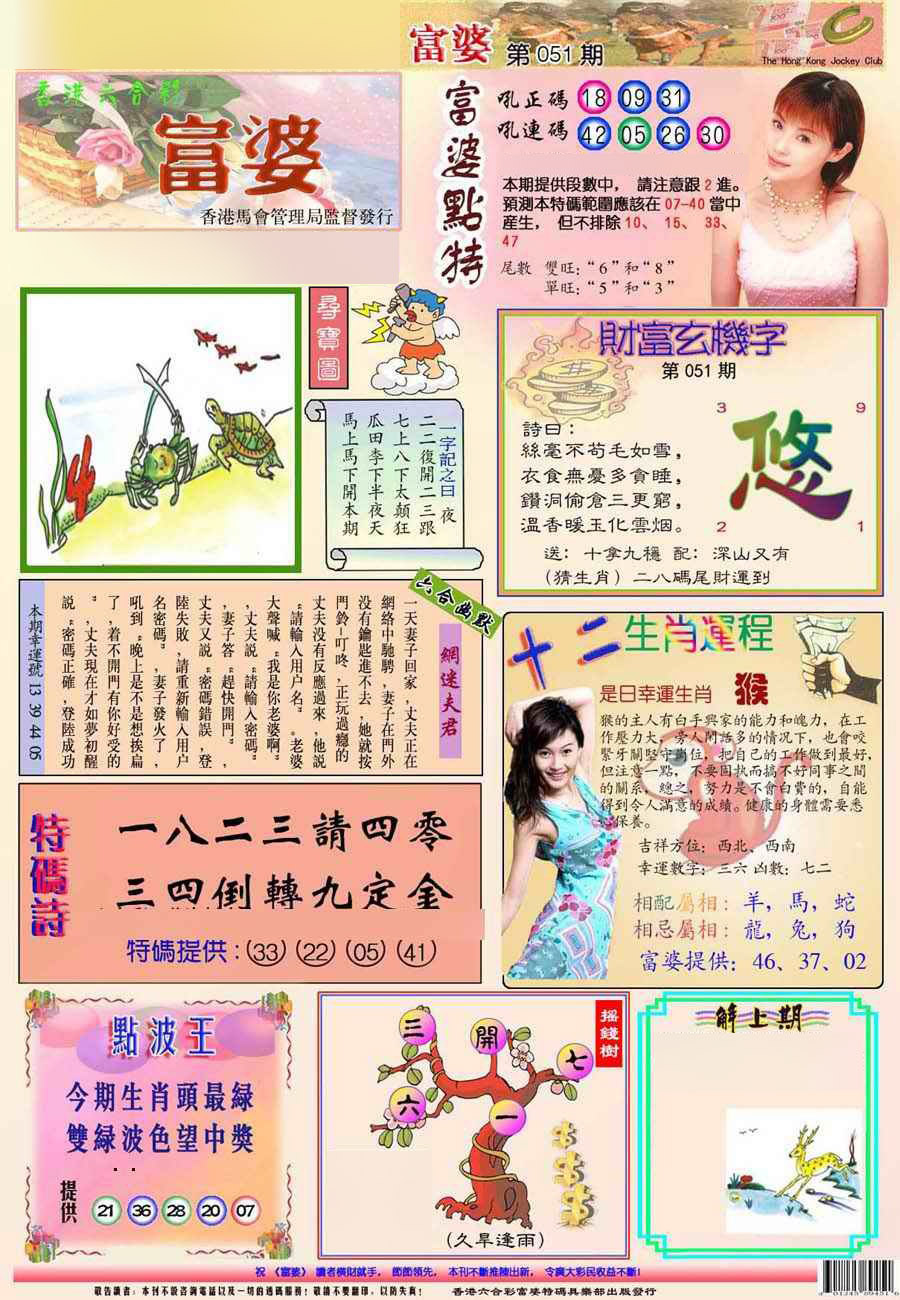 富婆 第051期
The Hong Kong Jockey Club
香港六合彩
富婆
香港馬會管理局監督發行
富婆點特
吼正碼 18 09 31
吼連碼 42 05 26 30
本期提供段數中， 請注意跟2進。
預測本特碼範圍應該在07-40當中
産生， 但不排除10、 15、 33、
47
尾數 雙旺：“6”和“8”
單旺：“5”和“3”
尋寶圖
一字記之曰 夜
二二復開二三跟
七上八下太顛狂
瓜田李下半夜天
馬上馬下開本期
財富玄機字
第051期
詩曰：
絲毫不苟毛如雪，
衣食無憂多貪睡，
鑽洞偷倉三更窮，
温香暖玉化雲烟。
3 9
悠
2 1
送： 十拿九穩 配： 深山又有
（猜生肖）二八碼尾財運到
六合幽默
網迷夫君
一天妻子回家，丈夫正在
網絡中馳騁，妻子在門外
没有鑰匙進不去，她就按
門鈴-叮咚，正玩過癮的
丈夫没有反應過來，他説
“請輸入用户名。”老婆
大聲喊“我是你老婆啊”
，丈夫説“請輸入密碼”
，妻子答“趕快開門”，
丈夫又説“密碼錯誤，登
陸失敗，請重新輸入用户
名密碼。”妻子發火了，
吼到“晚上是不是想挨扁
了，着不開門有你好受的
”，丈夫現在才如夢初醒
説“密碼正確，登陸成功
本期幸運號 13 39 44 05
十二生肖運程
是日幸運生肖 猴
猴的主人有白手興家的能力和魄力，在工
作壓力大，旁人閒話多的情况下，也會咬
緊牙關堅守崗位，把自己的工作做到最好，
但注意一點，不要固執而搞不好同事之間
的關系，總之，努力是不會白費的，自能
得到令人滿意的成績。健康的身體需要悉
心保養。
吉祥方位：西北、西南
幸運數字：三六 凶數：七二
相配屬相：羊，馬，蛇
相忌屬相：龍，兔，狗
富婆提供：46、37、02
特碼詩
一八二三請四零
三四倒轉九定金
特碼提供：33 22 05 41
點波王
今期生肖頭最緑
雙緑波色望中獎
提供 21 36 28 20 07
摇錢樹
三 開 七
六 一
（久旱逢雨）
解上期
祝 《富婆》 讀者橫財就手， 節節領先， 本刊不斷推陳出新， 令廣大彩民收益不斷！
敬告讀者：本刊不設咨詢電話以及一切的透碼服務！敬請不要翻印，以防失真！ 香港六合彩富婆特碼具樂部出版發行